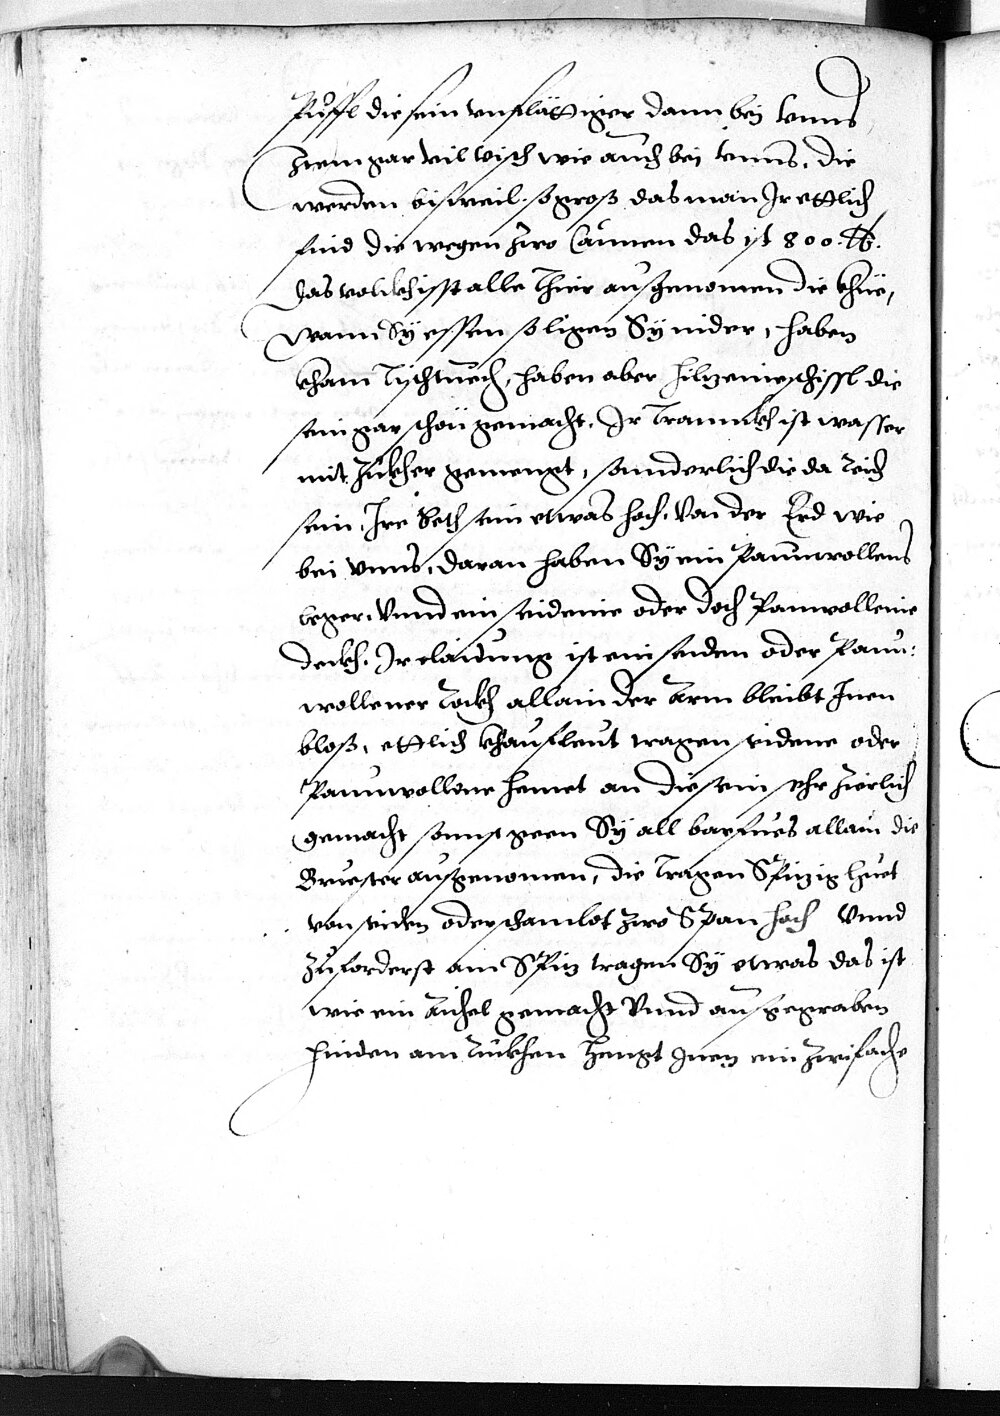 Püffl die sein unflättiger dann bei unns
Item gar vil visch wie auch bei unns, die
werden bisweil so groß das man Ir ettlich
find die wegen zwo Cannen das ist 800 ℔.
das volckh isst alle Thier ausgenomen die khüe,
wann Sÿ essen so ligen Sÿ nider, haben
kham Tischtuech, haben aber hiltzene schissl die
sein gar schön gemacht. Ir Trannckh ist wasser
mit Zukher gemengt, sonnderlich die da reich
sein, Ire Beth sein etwas hoch, von der Erd wie
bei unns, daran haben Sÿ ein Paumwollens
leger, Vnnd ein seidenne oder doch Pamwollenne
deckh. Ir claidung ist ein seiden oder Paum:
wollener Rockh allain der Arm bleibt Inen
bloß, ettlich khaufleut tragen seidene oder
Paumwollene hemet an die sein sehr zierlich
gemacht sonnst geen Sÿ all barfues allain die
Briester ausgenomen, die Tragen Spizig huet
von seiden oder schamlot zwo Span hoch Vnnd
zuforderst am Spiz tragen Sÿ etwas das ist
wie ein Aichel gemacht Vnnd ausgegraben
hinden am Rukhen hengt Inen ein zwifache